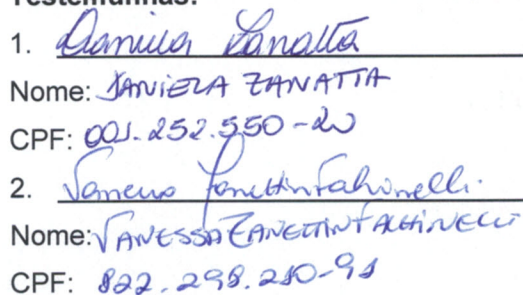 Testemunhas:
1. Daniela Zanatta
Nome: DANIELA ZANATTA
CPF: 001.252.550-20
2. Vanessa Zanettin Falchinelli
Nome: VANESSA ZANETTIN FALCHINELLI
CPF: 822.298.210-91